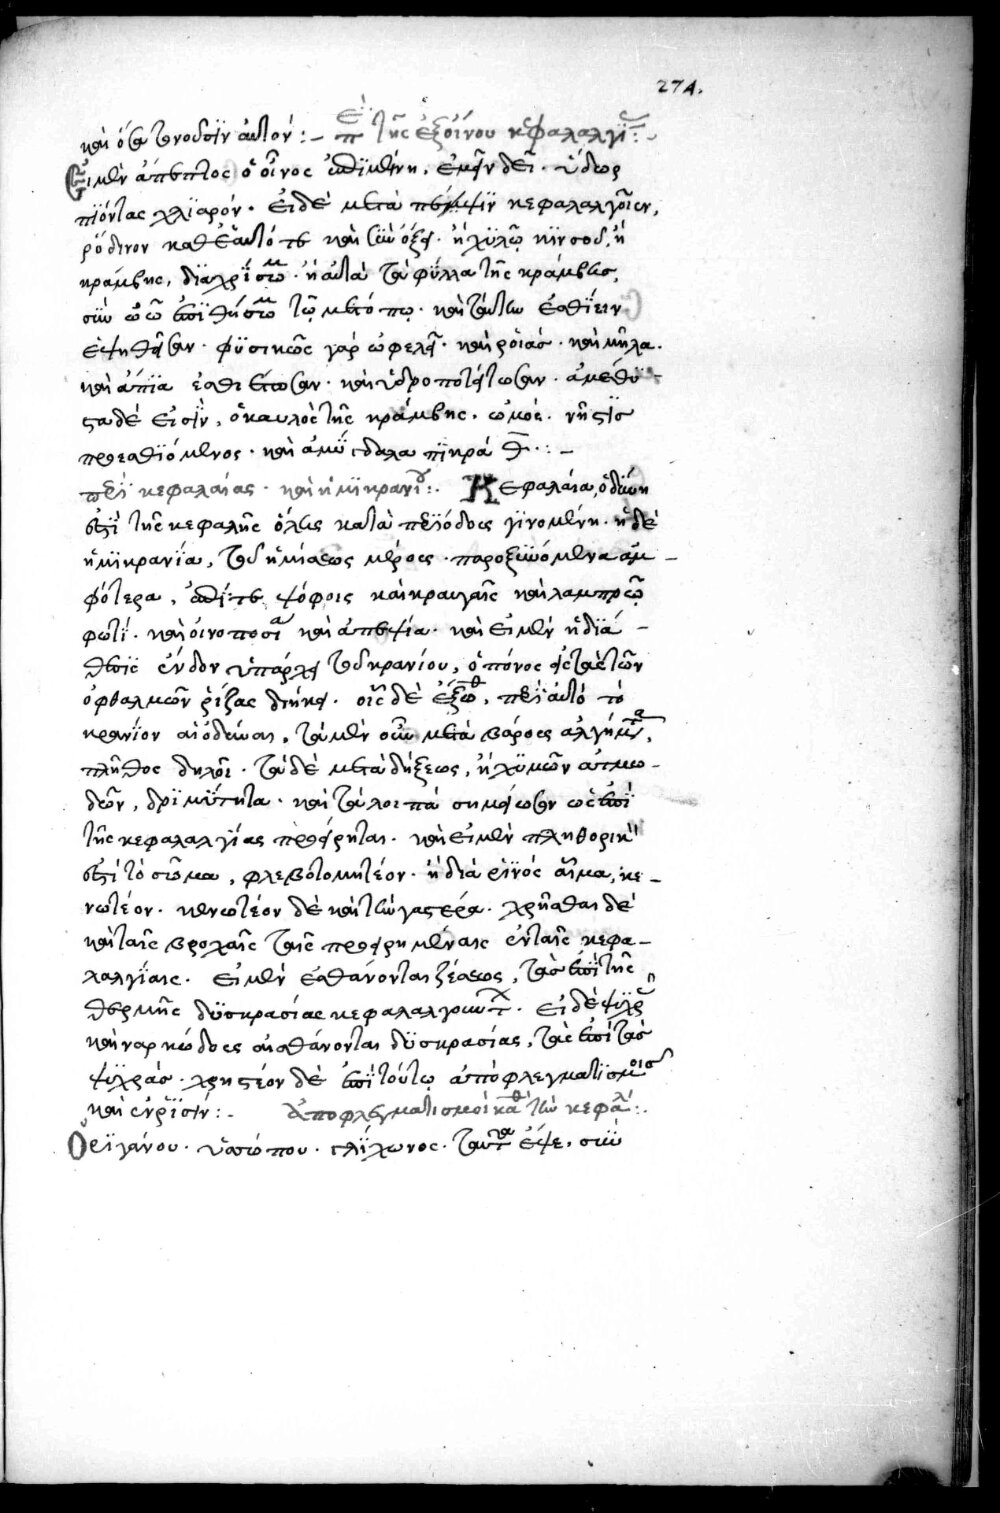 274.
καὶ ὅσα τονοῦσιν αὐτόν :– ἐπὶ τῆς ἐξ οἴνου κεφαλαλγίας :–
Εἰ μὲν ἄπεπτος ὁ οἶνος ἐπιμένῃ, ἐμεῖν δεῖ · ὕδωρ
πϊόντας χλϊαρόν · εἰ δὲ μετὰ πέψϊν κεφαλαλγοῖεν,
ῥόδινον καθ' ἑαυτό τε καὶ σὺν ὄξει · ἢ χϋλῷ κϊνσοῦ, ἢ
κράμβης, διαχρίσθωσαν · ἢ αὐτὰ τὰ φύλλα τῆς κράμβης,
σὺν ὠῷ ἐπϊθήσομεν τῷ μετόπῳ · καὶ ταύτην ἐσθϊειν
ἑψηθεῖσαν · φϋσικῶς γὰρ ὠφελεῖ · καὶ ῥοιάς · καὶ μῆλα ·
καὶ ἄπϊα ἐσθιέτωσαν · καὶ ὑδροποτείτωσαν · ἀμεθϋ–
στα δέ εἰσϊν, ὁ καυλὸς τῆς κράμβης, ὠμὸς · νῆστϊς
προεσθϊόμενος · καὶ ἀμϋγδαλα πϊκρά θ · : –
περϊ κεφαλαίας · καὶ ἡμϊκρανίου :· Κεφαλαία, ὀδύνη
ἐστϊ τῆς κεφαλῆς ὅλης κατὰ περϊόδους γϊνομένη · ἡ δὲ
ἡμϊκρανϊα, τοῦ ἡμίσεως μέρους · παροξϋνόμενα ἀμ–
φότερα, ἐπί τε ψόφοις καὶ κραυγαῖς καὶ λαμπρῷ
φωτί · καὶ οἰνοποσίᾳ καὶ ἀπεψίᾳ · καὶ εἰ μὲν ἡ διά–
θεσϊς ἔνδον ὑπάρχει τοῦ κρανίου, ὁ πόνος εἰς τὰς τῶν
ὀφθαλμῶν ῥίζας διήκει · οἷς δὲ ἔξωθεν, περϊ αὐτὸ τὸ
κρανίον αἱ ὀδύναι, τὰ μὲν οὖν μετὰ βάρους ἀλγήματα,
πλῆθος δηλοῖ · τὰ δὲ μετὰ δήξεως, ἢ χϋμῶν ἀτμω–
δῶν, δρϊμϋτητα · καὶ τὰ λοιπὰ σημεῖα ὡς ἐπϊ
τῆς κεφαλαλγϊας προείρηται · καὶ εἰ μὲν πληθορικὸν
ἐστϊ τὸ σῶμα, φλεβοτομητέον · ἢ διὰ ῥϊνός αἷμα, κε–
νωτέον · κενωτέον δὲ καὶ τὴν γαστέρα · χρῆσθαι δὲ
καὶ ταῖς βροχαῖς ταῖς προειρημέναις ἐν ταῖς κεφα–
λαλγϊαις · εἰ μὲν ἐσθάνονται ζέσεως, τὰς ἐπϊ τῆς
θερμῆς δϋσκρασίας κεφαλαλγούντων · εἰ δὲ ψϋχρᾶς
καὶ ναρκώδους αἰσθάνονται δϋσκρασίας, τὰς ἐπϊ τὰς
ψϋχράς · χρηστέον δὲ ἐπϊ τούτῳ ἀποφλεγματϊσμοῖς
καὶ ἐν ῥϊσίν :– Ἀποφλεγματισμοὶ κατὰ τὴν κεφαλήν :·
Ὀρϊγάνου · ὑσσώπου · γλϊχωνος · ταῦτα ἕψε, σὺν